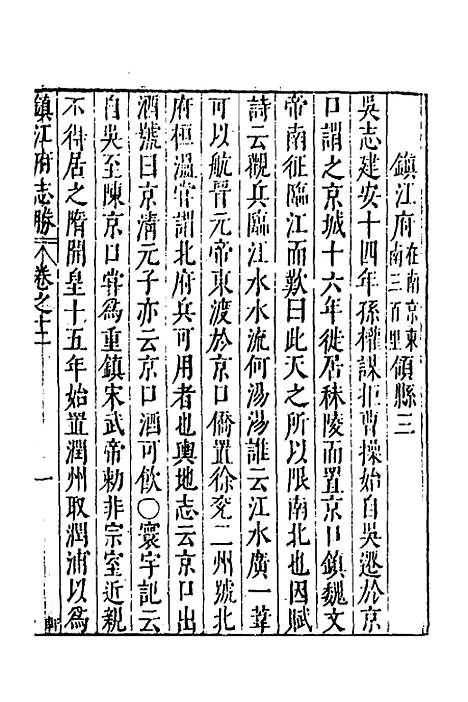 鎮江府在南京東南三百里領縣三
吳志建安十四年孫權謀拒曹操始自吳遷於京
口謂之京城十六年徙居秣陵而置京口鎮魏文
帝南征臨江而歎曰此天之所以限南北也因賦
詩云觀兵臨江水水流何湯湯誰云江水廣一葦
可以航晉元帝東渡於京口僑置徐兗二州號北
府桓溫嘗謂北府兵可用者也輿地志云京口出
酒號曰京清元子亦云京口酒可飲〇寰宇記云
自吳至陳京口甞為重鎮宋武帝勑非宗室近親
不得居之隋開皇十五年始置潤州取潤浦以為
鎮江府志勝 卷之十二 一